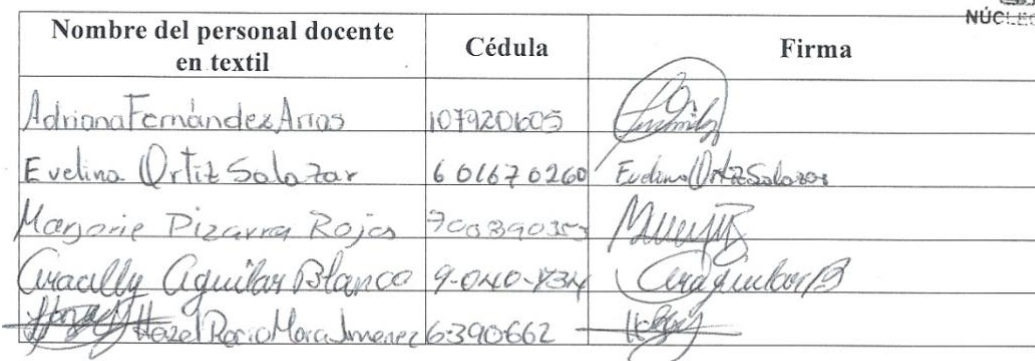 NÚCLEO
Nombre del personal docente en textil Cédula Firma
Adriana Fernández Arias 107920605
Evelina Ortiz Salazar 601670260 Evelina Ortiz Salazar
Marjorie Pizarra Rojas
Aracilly Aguilar Blanco 9-040-734 AraAguilarB
Hazel Rocio Mora Jimenez 6390662